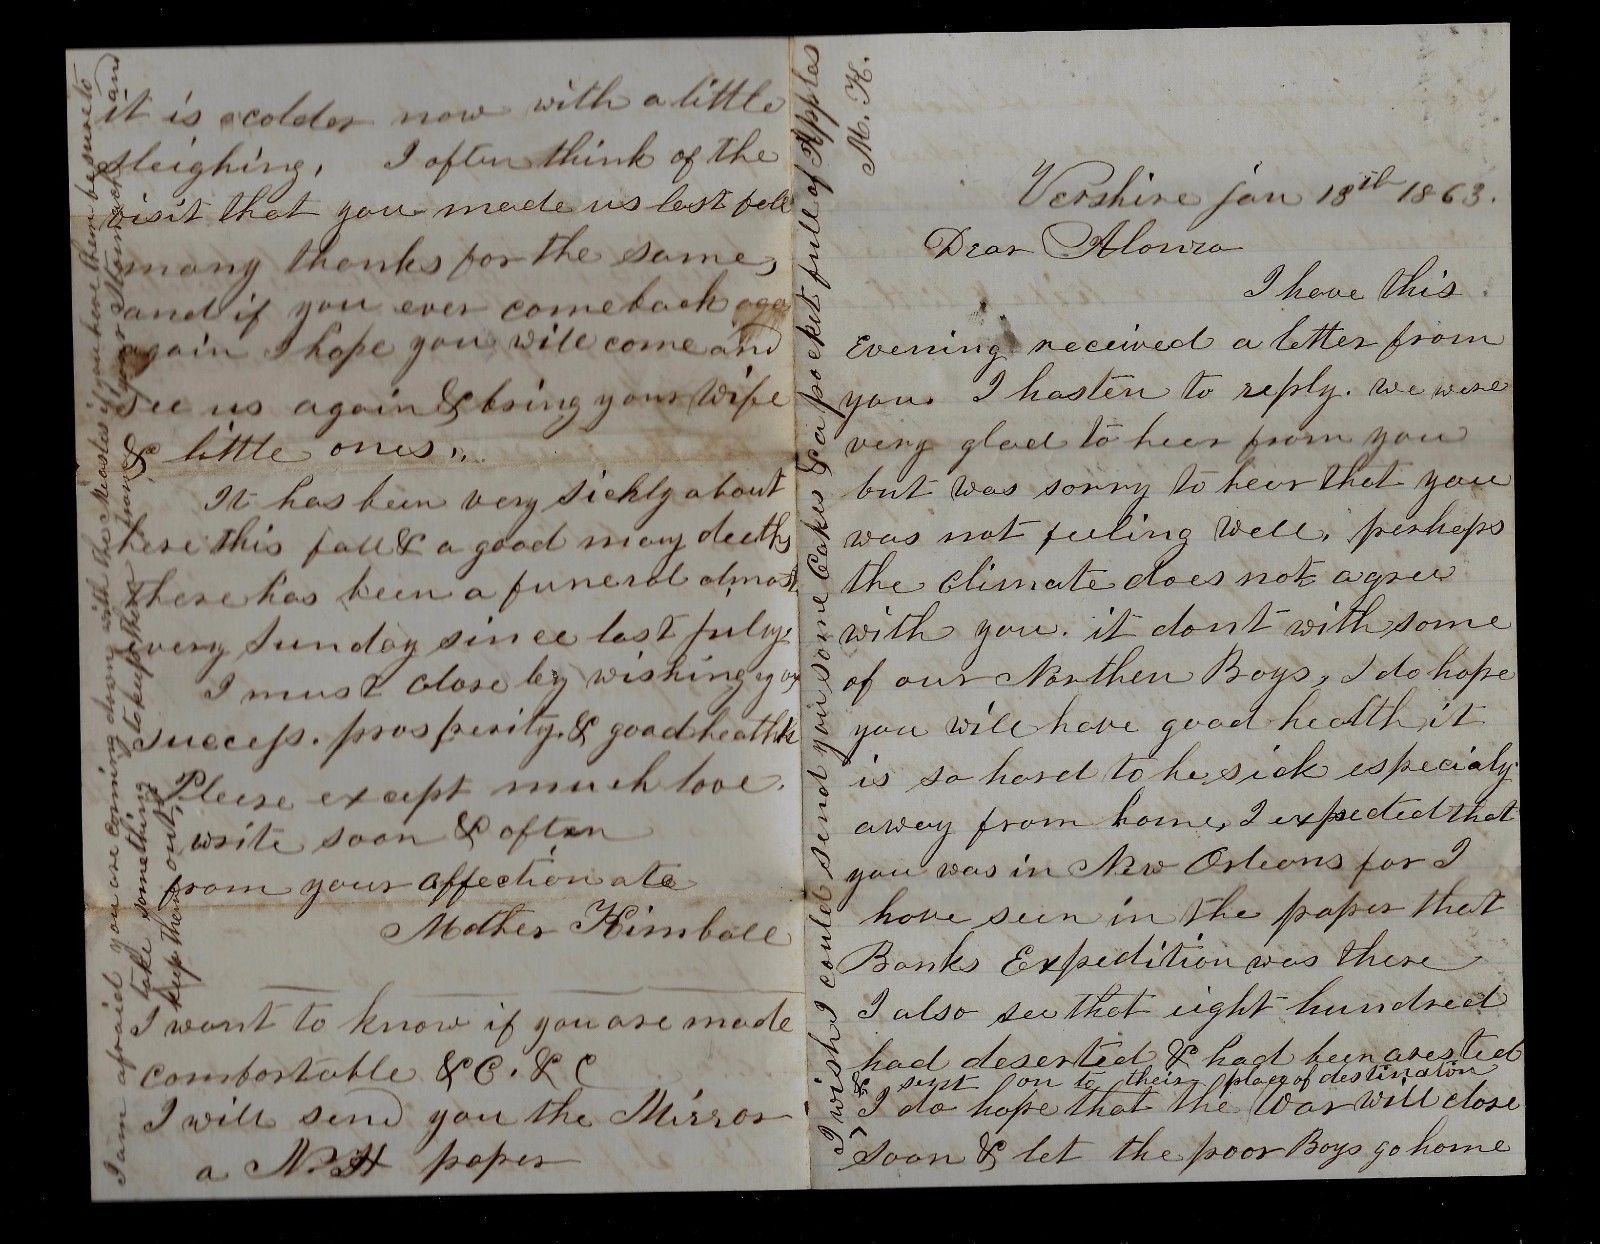 Vershire jan 18th 1863.
Dear Alonzo
I have this
Evening received a letter from
you. I hasten to reply. we were
very glad to hear from you
but was sorry to hear that you
was not feeling well, perhaps
the climate does not agree
with you. it dont with some
of our Northen Boys, I do hope
you will have good health, it
is so hard to be sick especialy
away from home, I expected that
you was in New Orleans for I
have seen in the paper that
Banks Expedition was there
I also see that eight hundred
had deserted & had been arested
& sent on to their place of destination
I do hope that the War will close
soon & let the poor Boys go home
I wish I could send you some Cakes & a pocket full of Apples
M. K.
it is colder now with a little
sleighing, I often think of the
visit that you made us last fall
many thanks for the same,
and if you ever come back aga
again I hope you will come and
see us again & bring your Wife
& little ones,,
It has been very sickly about
here this fall & a good many deeths
there has been a funeral almost
every Sunday since last july,
I must close by wishing you
success. prosperity, & good heathh
Please except much love.
write soon & often
from your affectionate
Mother Kimball
I want to know if you are made
comfortable &C. &C
I will send you the Mirror
a N. H paper
I am afraid you are coming down with the Measles if you have them be sure to
take something to keep them from your Stomach and
keep them out,